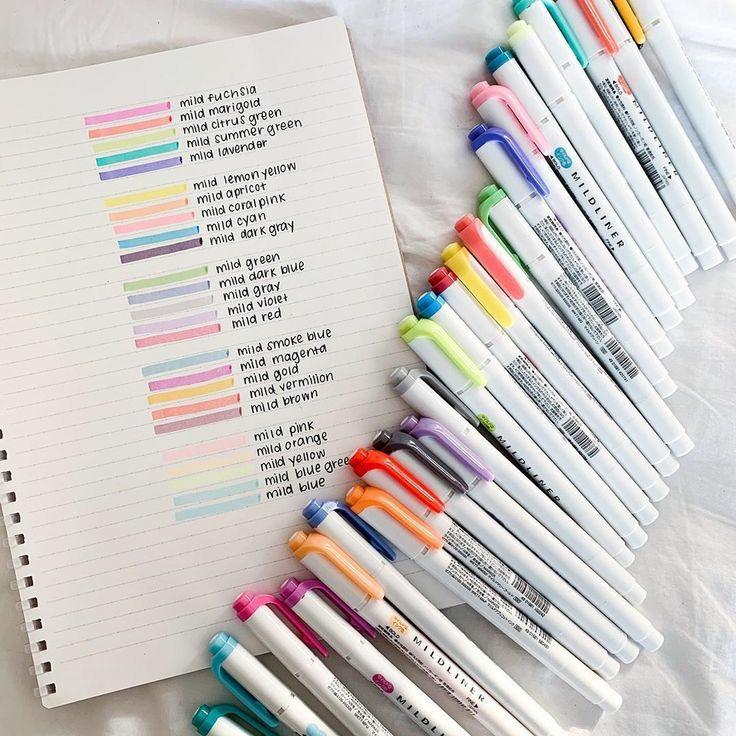 mild fuchsia
mild marigold
mild citrus green
mild summer green
mild lavender
mild lemon yellow
mild apricot
mild coral pink
mild cyan
mild dark gray
mild green
mild dark blue
mild gray
mild violet
mild red
mild smoke blue
mild magenta
mild gold
mild vermilion
mild brown
mild pink
mild orange
mild yellow
mild blue green
mild blue
MILDLINER
MILDLINER
MILDLINER
MILDLINER
MILDLINER